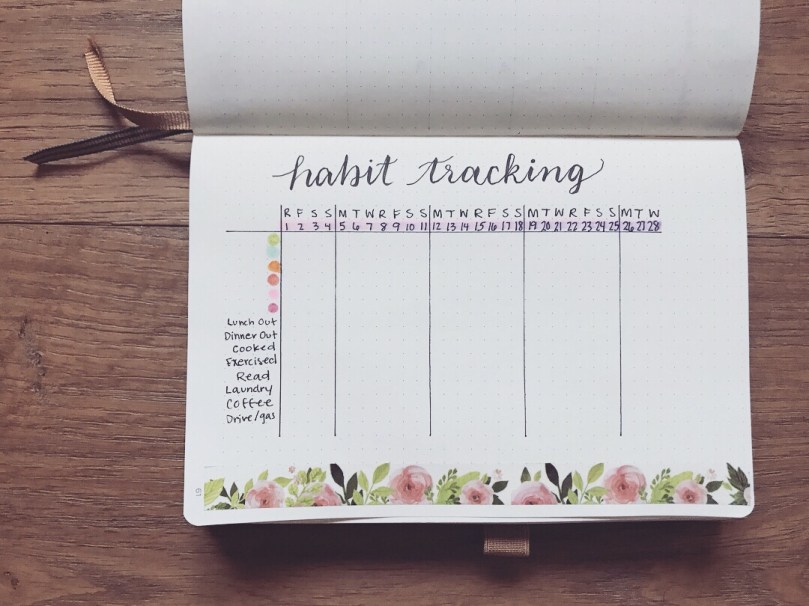 habit tracking
R F S S M T W R F S S M T W R F S S M T W R F S S M T W
1 2 3 4 5 6 7 8 9 10 11 12 13 14 15 16 17 18 19 20 21 22 23 24 25 26 27 28
Lunch Out
Dinner Out
Cooked
Exercised
Read
Laundry
Coffee
Drive/gas